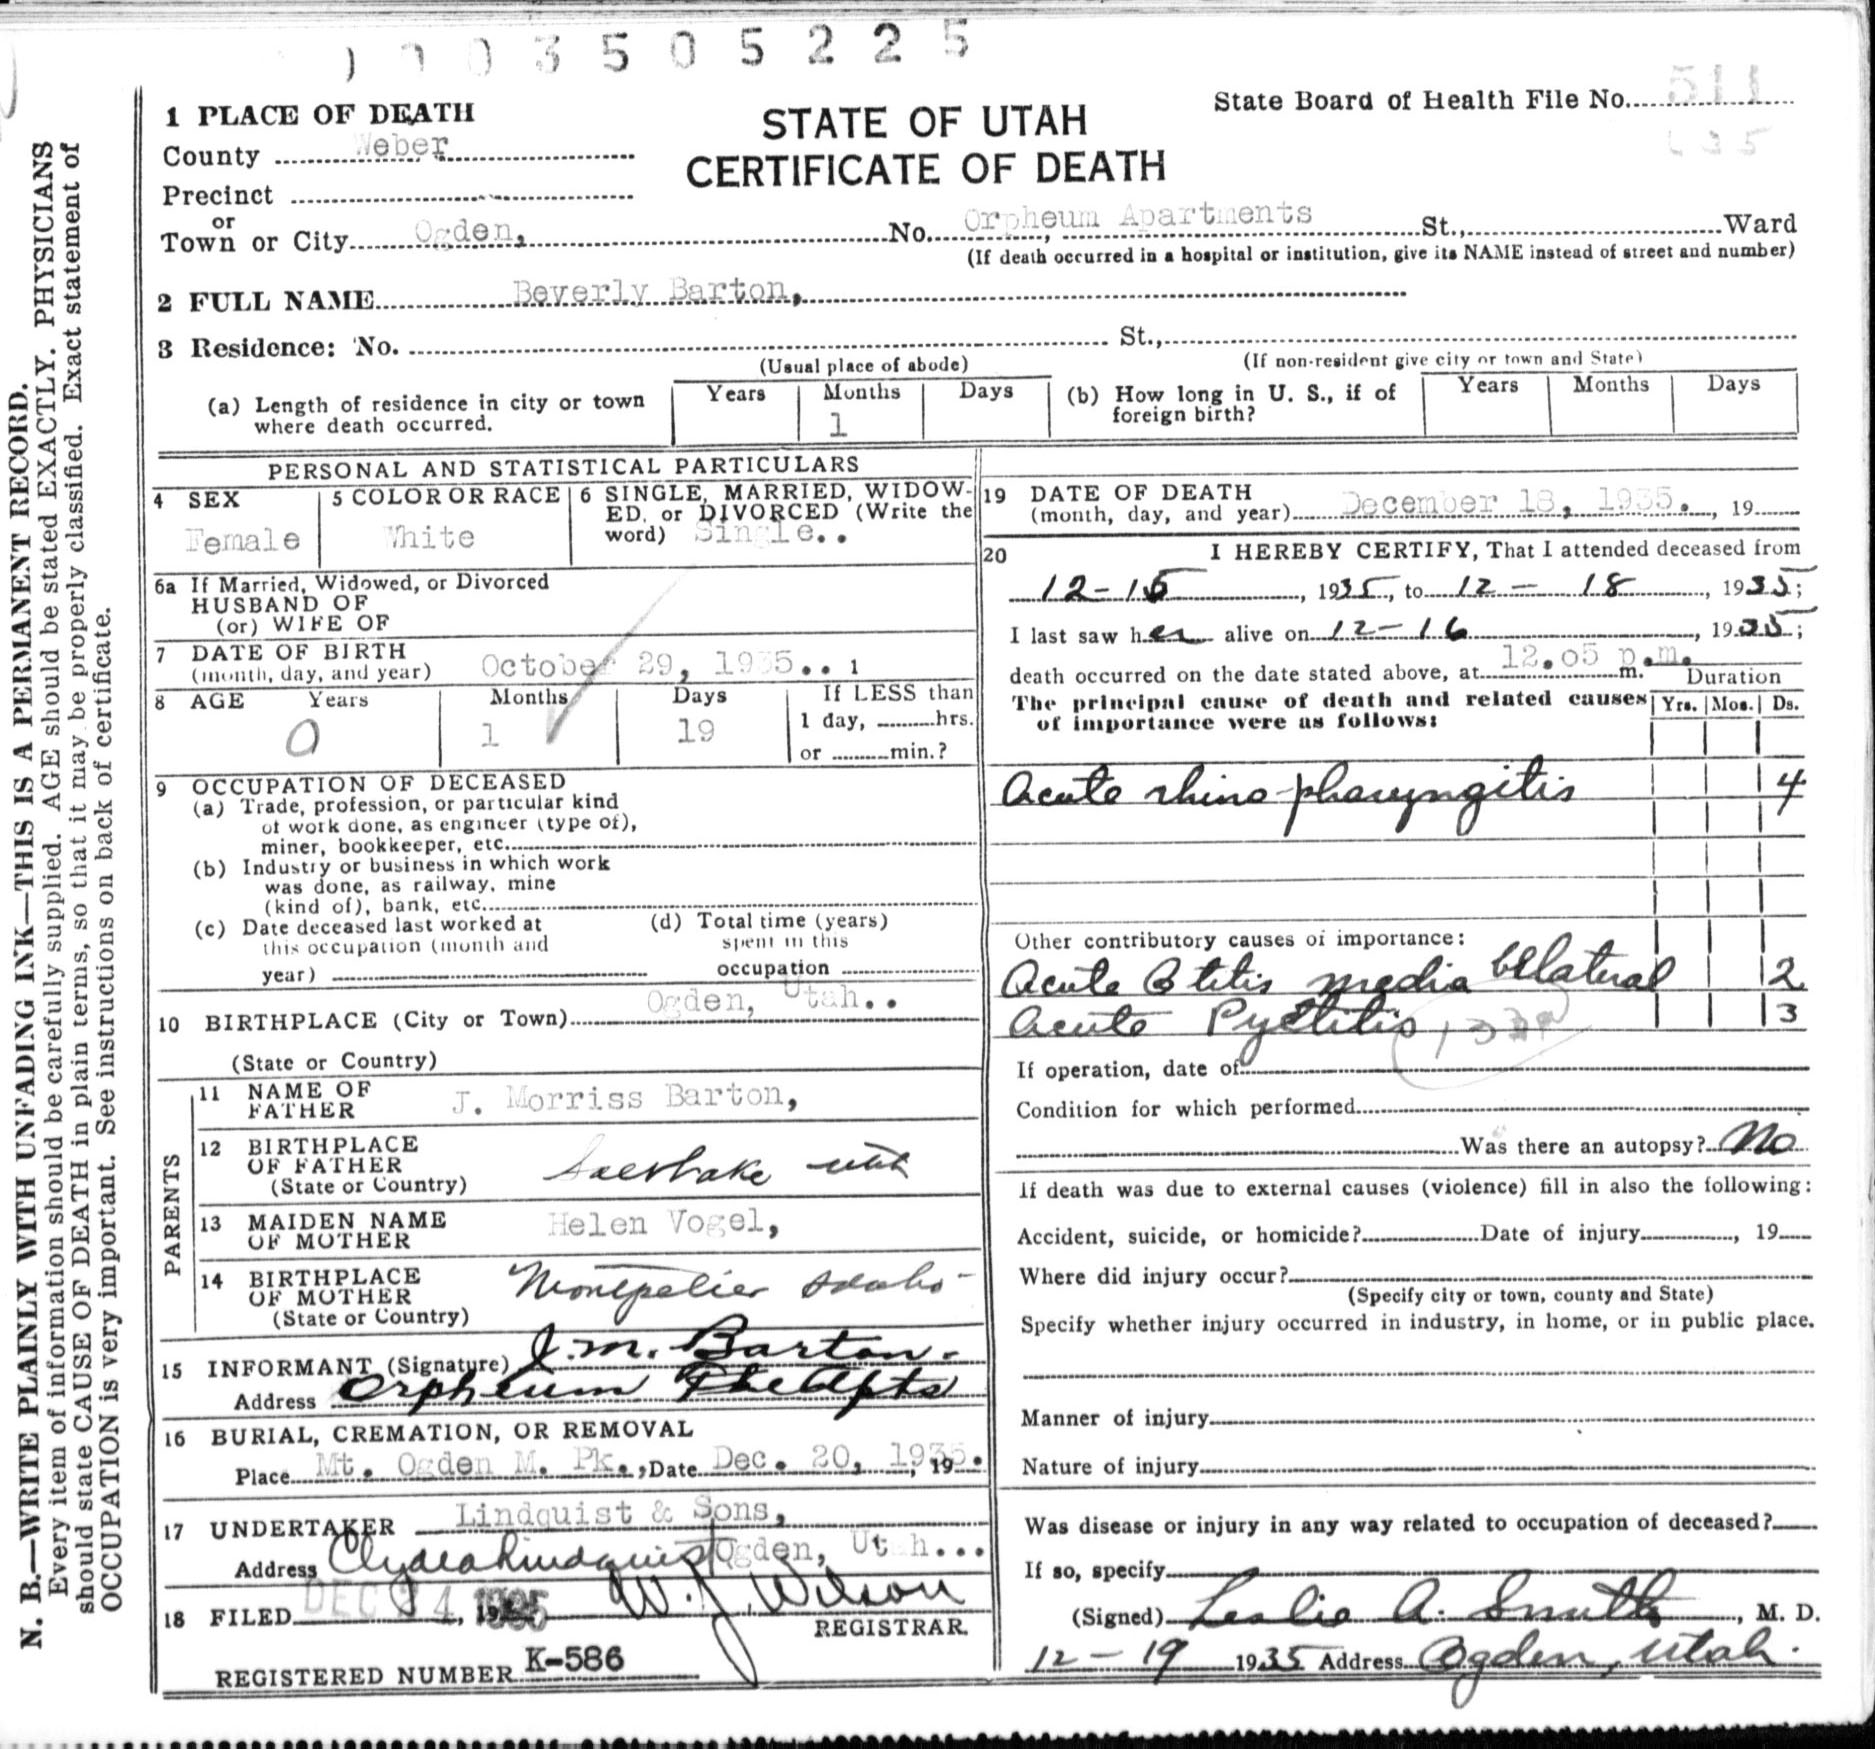 3 5 0 5 2 2 5
State Board of Health File No. 511
STATE OF UTAH
CERTIFICATE OF DEATH
1 PLACE OF DEATH
County Weber
Precinct
or
Town or City Ogden, No. Orpheum Apartments St., Ward
(If death occurred in a hospital or institution, give its NAME instead of street and number)
2 FULL NAME Beverly Barton,
3 Residence: No. St.,
(Usual place of abode) (If non-resident give city or town and State)
(a) Length of residence in city or town where death occurred. Years Months 1 Days
(b) How long in U. S., if of foreign birth? Years Months Days
PERSONAL AND STATISTICAL PARTICULARS
4 SEX Female
5 COLOR OR RACE White
6 SINGLE, MARRIED, WIDOW-
ED, or DIVORCED (Write the
word) Single..
6a If Married, Widowed, or Divorced
HUSBAND OF
(or) WIFE OF
7 DATE OF BIRTH
(month, day, and year) October 29, 1935.. 1
8 AGE Years 0 Months 1 Days 19
If LESS than
1 day, hrs.
or min.?
9 OCCUPATION OF DECEASED
(a) Trade, profession, or particular kind
of work done, as engineer (type of),
miner, bookkeeper, etc.
(b) Industry or business in which work
was done, as railway, mine
(kind of), bank, etc.
(c) Date deceased last worked at
this occupation (month and
year)
(d) Total time (years)
spent in this
occupation
10 BIRTHPLACE (City or Town) Ogden, Utah..
(State or Country)
PARENTS
11 NAME OF
FATHER J. Morriss Barton,
12 BIRTHPLACE
OF FATHER
(State or Country) Salt Lake Utah
13 MAIDEN NAME
OF MOTHER Helen Vogel,
14 BIRTHPLACE
OF MOTHER
(State or Country) Montpelier Idaho-
15 INFORMANT (Signature) J. M. Barton.
Address Orpheum The Apts
16 BURIAL, CREMATION, OR REMOVAL
Place Mt. Ogden M. Pk., Date Dec. 20, 1935. , 19
17 UNDERTAKER Lindquist & Sons,
Address Clyde Lindquist Ogden, Utah...
18 FILED DEC 24 1935, 19 W. J. Wilson
REGISTRAR.
REGISTERED NUMBER K-586
19 DATE OF DEATH
(month, day, and year) December 18, 1935. , 19
20 I HEREBY CERTIFY, That I attended deceased from
12-15, 1935, to 12 - 18, 1935;
I last saw her alive on 12-16, 1935;
death occurred on the date stated above, at 12.05 p.m. m.
The principal cause of death and related causes
of importance were as follows:
Duration
Yrs. Mos. Ds.
Acute rhino-pharyngitis 4
Other contributory causes of importance:
Acute Otitis media bilateral 2
Acute Pyelitis 3
If operation, date of
Condition for which performed
Was there an autopsy? No
If death was due to external causes (violence) fill in also the following:
Accident, suicide, or homicide? Date of injury , 19
Where did injury occur?
(Specify city or town, county and State)
Specify whether injury occurred in industry, in home, or in public place.
Manner of injury
Nature of injury
Was disease or injury in any way related to occupation of deceased?
If so, specify
(Signed) Leslie A. Smith, M. D.
12-19 1935 Address Ogden, Utah.
N. B.—WRITE PLAINLY WITH UNFADING INK—THIS IS A PERMANENT RECORD.
Every item of information should be carefully supplied. AGE should be stated EXACTLY. PHYSICIANS
should state CAUSE OF DEATH in plain terms, so that it may be properly classified. Exact statement of
OCCUPATION is very important. See instructions on back of certificate.